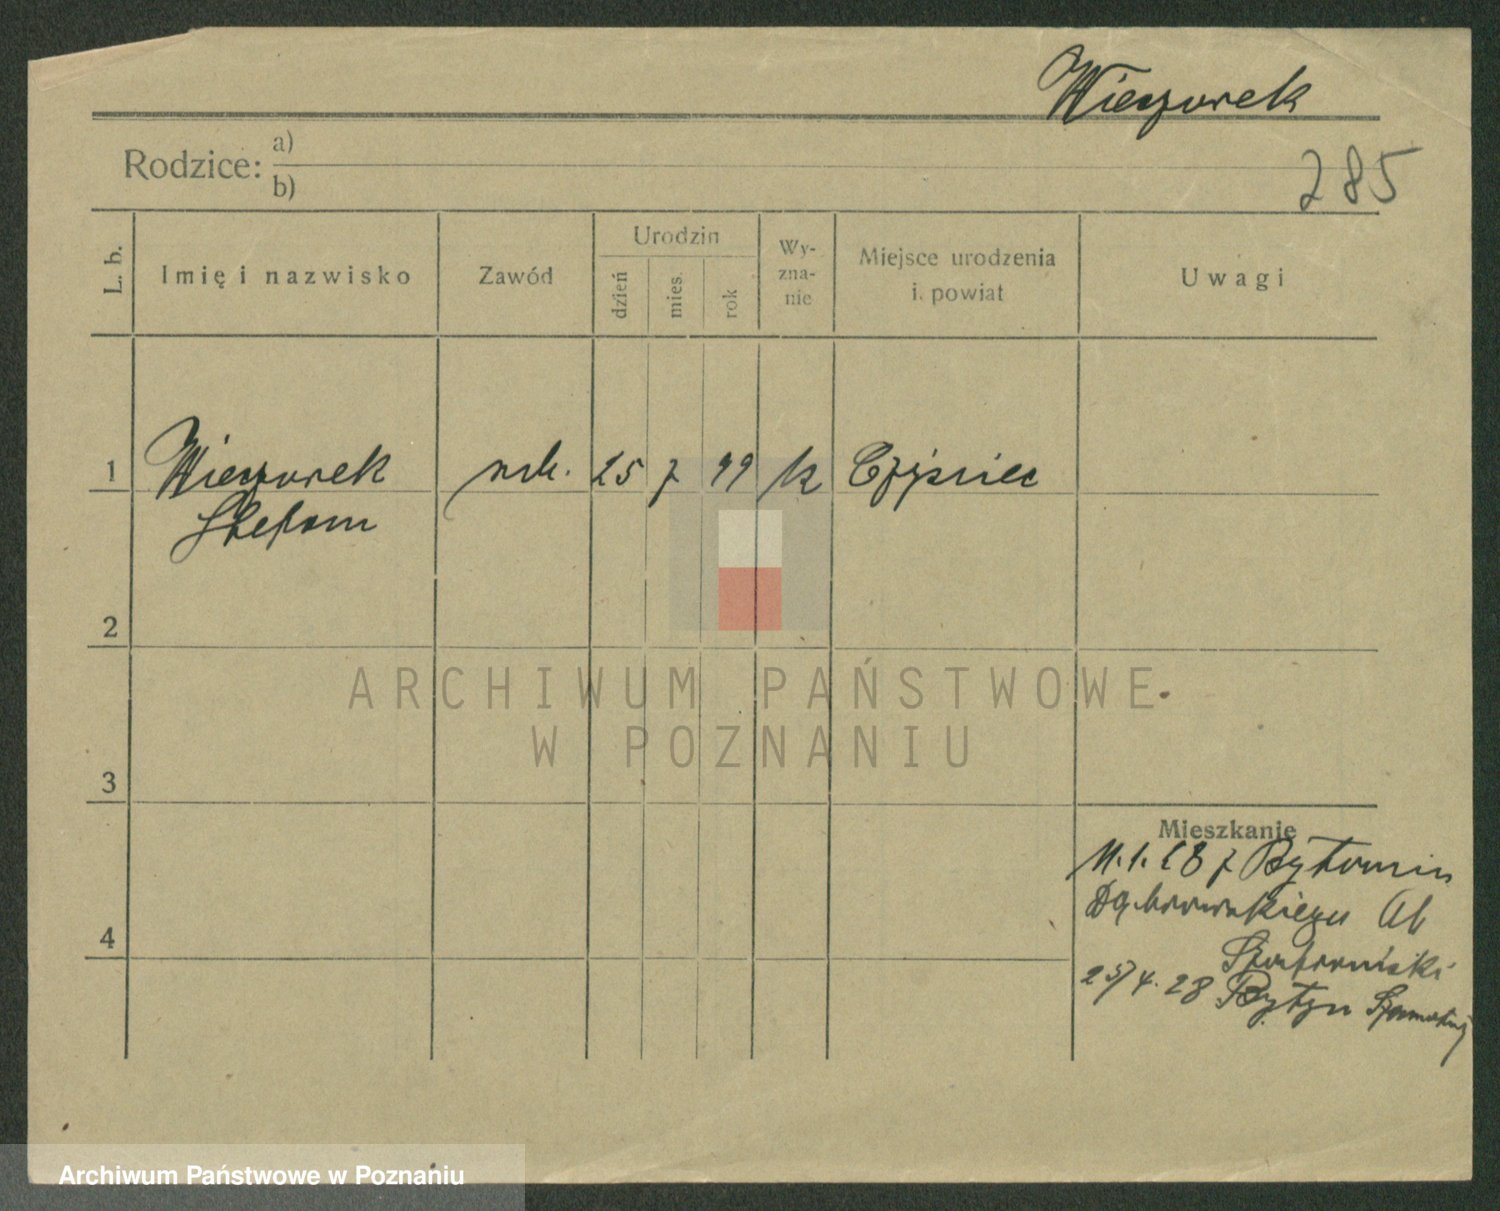 Wieczorek
Rodzice: a)
b)
285
L. b.
Imię i nazwisko
Zawód
Urodzin
dzień
mies.
rok
Wy-
zna-
nie
Miejsce urodzenia
i powiat
Uwagi
1 Wieczorek rob. 25 7 99 k
Stefan
2
3
4
Mieszkanie
11.1.28 z
Dąbrowskiego
25/4.28 Bytyń Szamotuły
ARCHIWUM PAŃSTWOWE
W POZNANIU
Archiwum Państwowe w Poznaniu